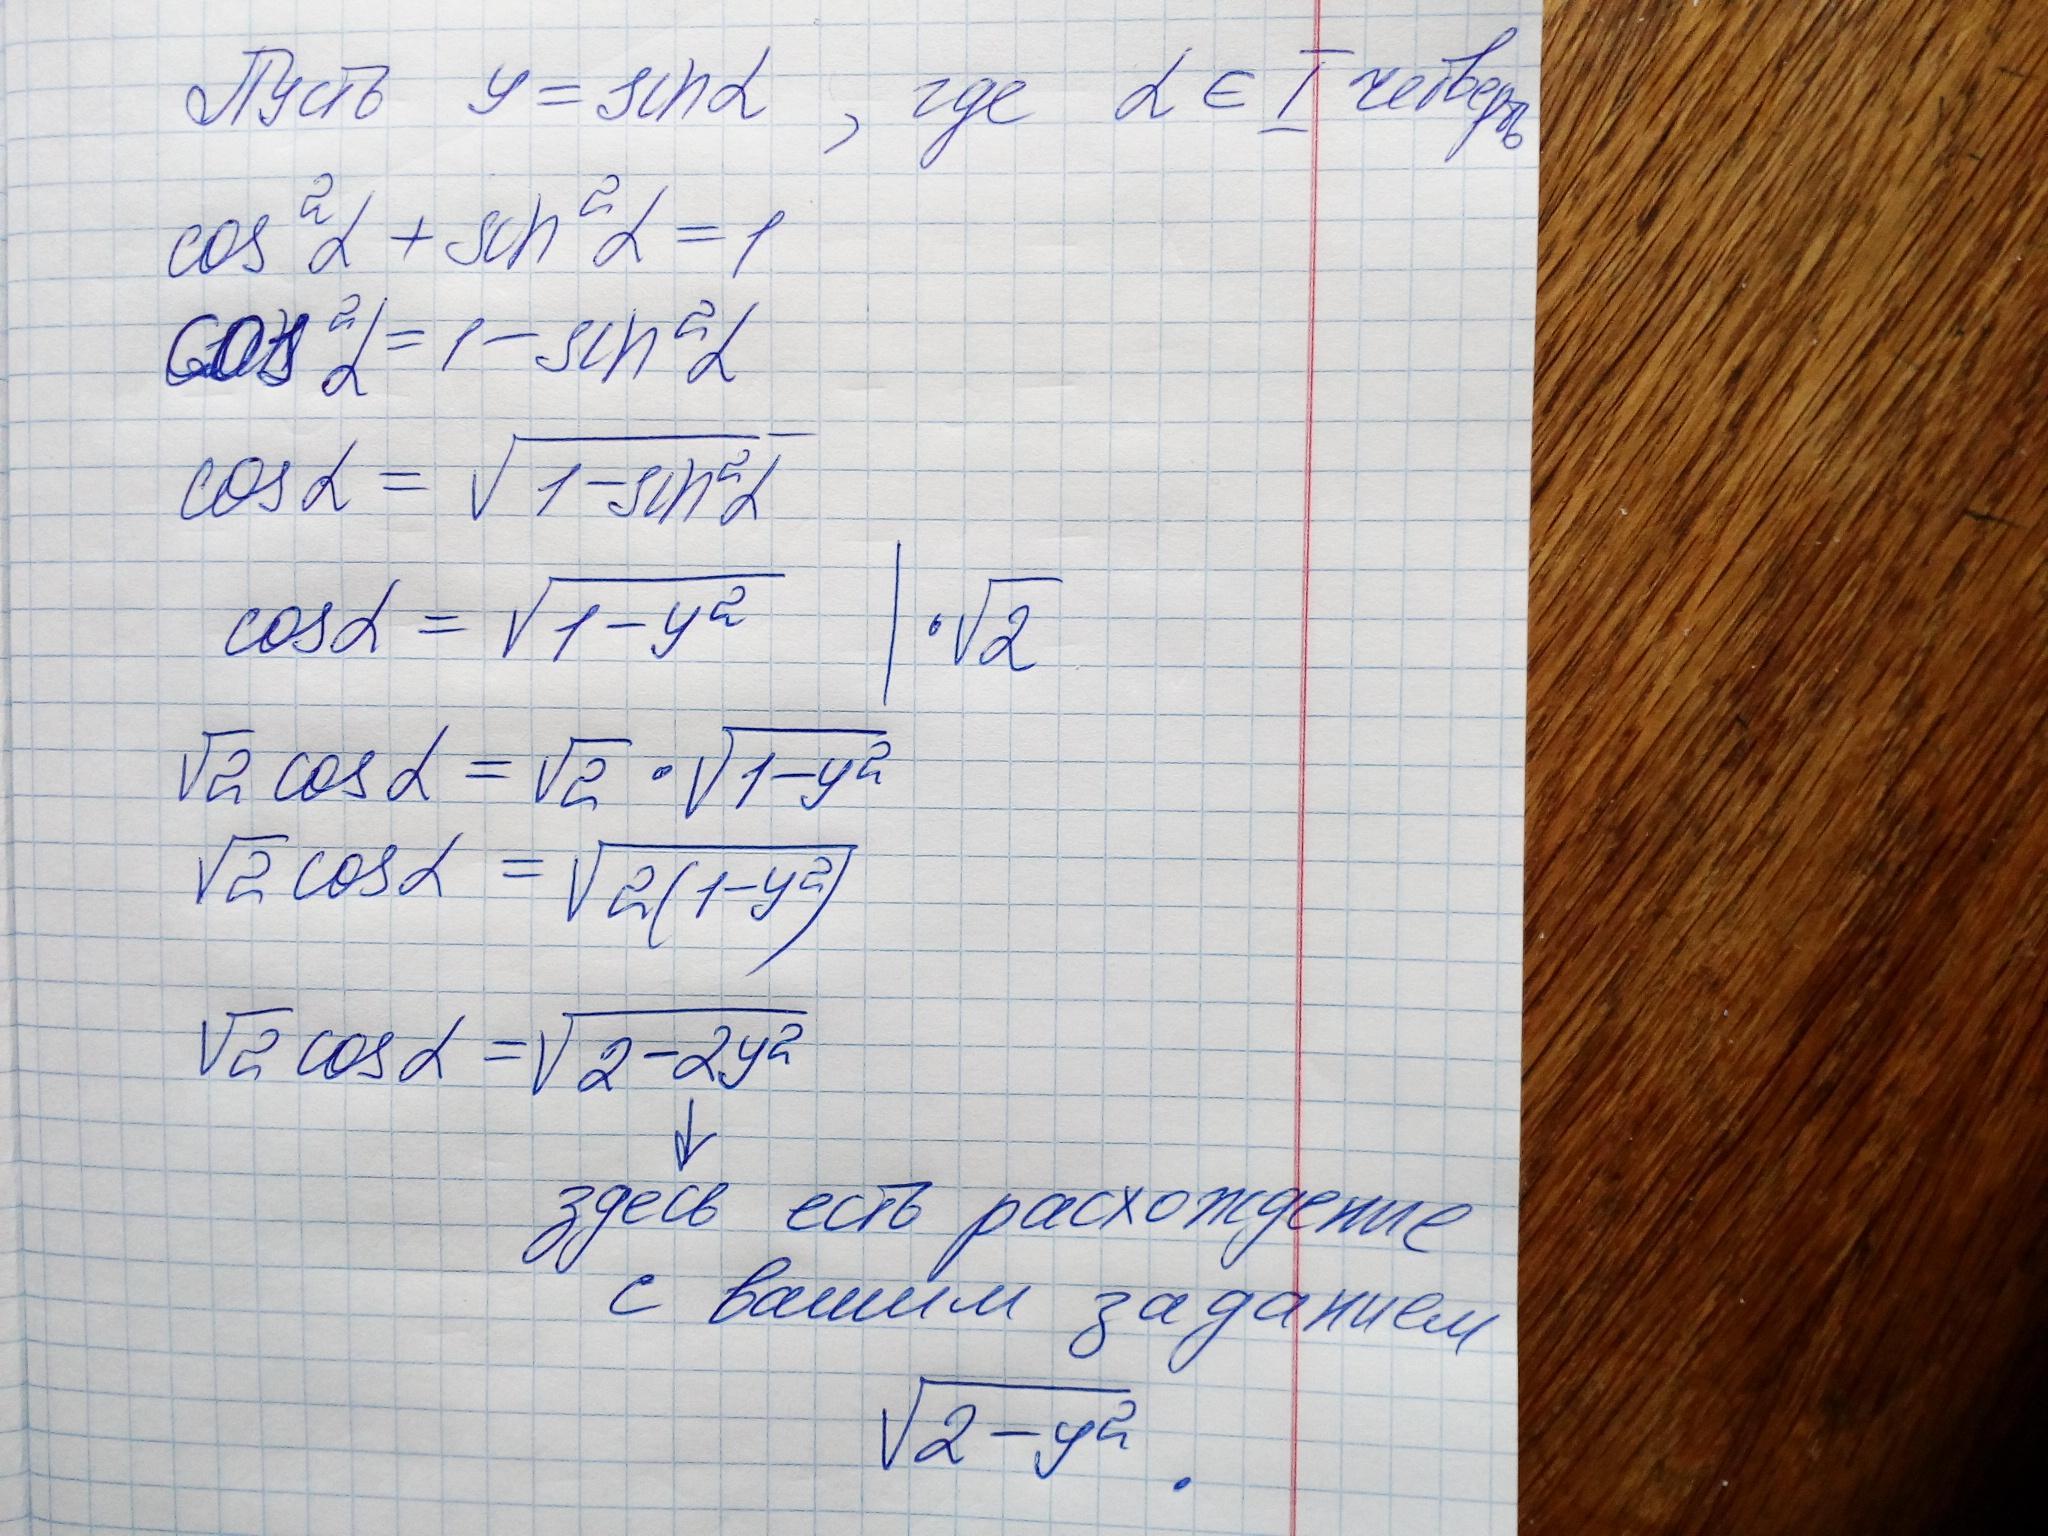 Пусть y = sin α, где α ∈ I четверть
cos²α + sin²α = 1
cos²α = 1 − sin²α
cos α = √(1 − sin²α)
cos α = √(1 − y²) | · √2
√2 cos α = √2 · √(1 − y²)
√2 cos α = √(2(1 − y²))
√2 cos α = √(2 − 2y²)
↓
здесь есть расхождение
с вашим заданием
√(2 − y²) .